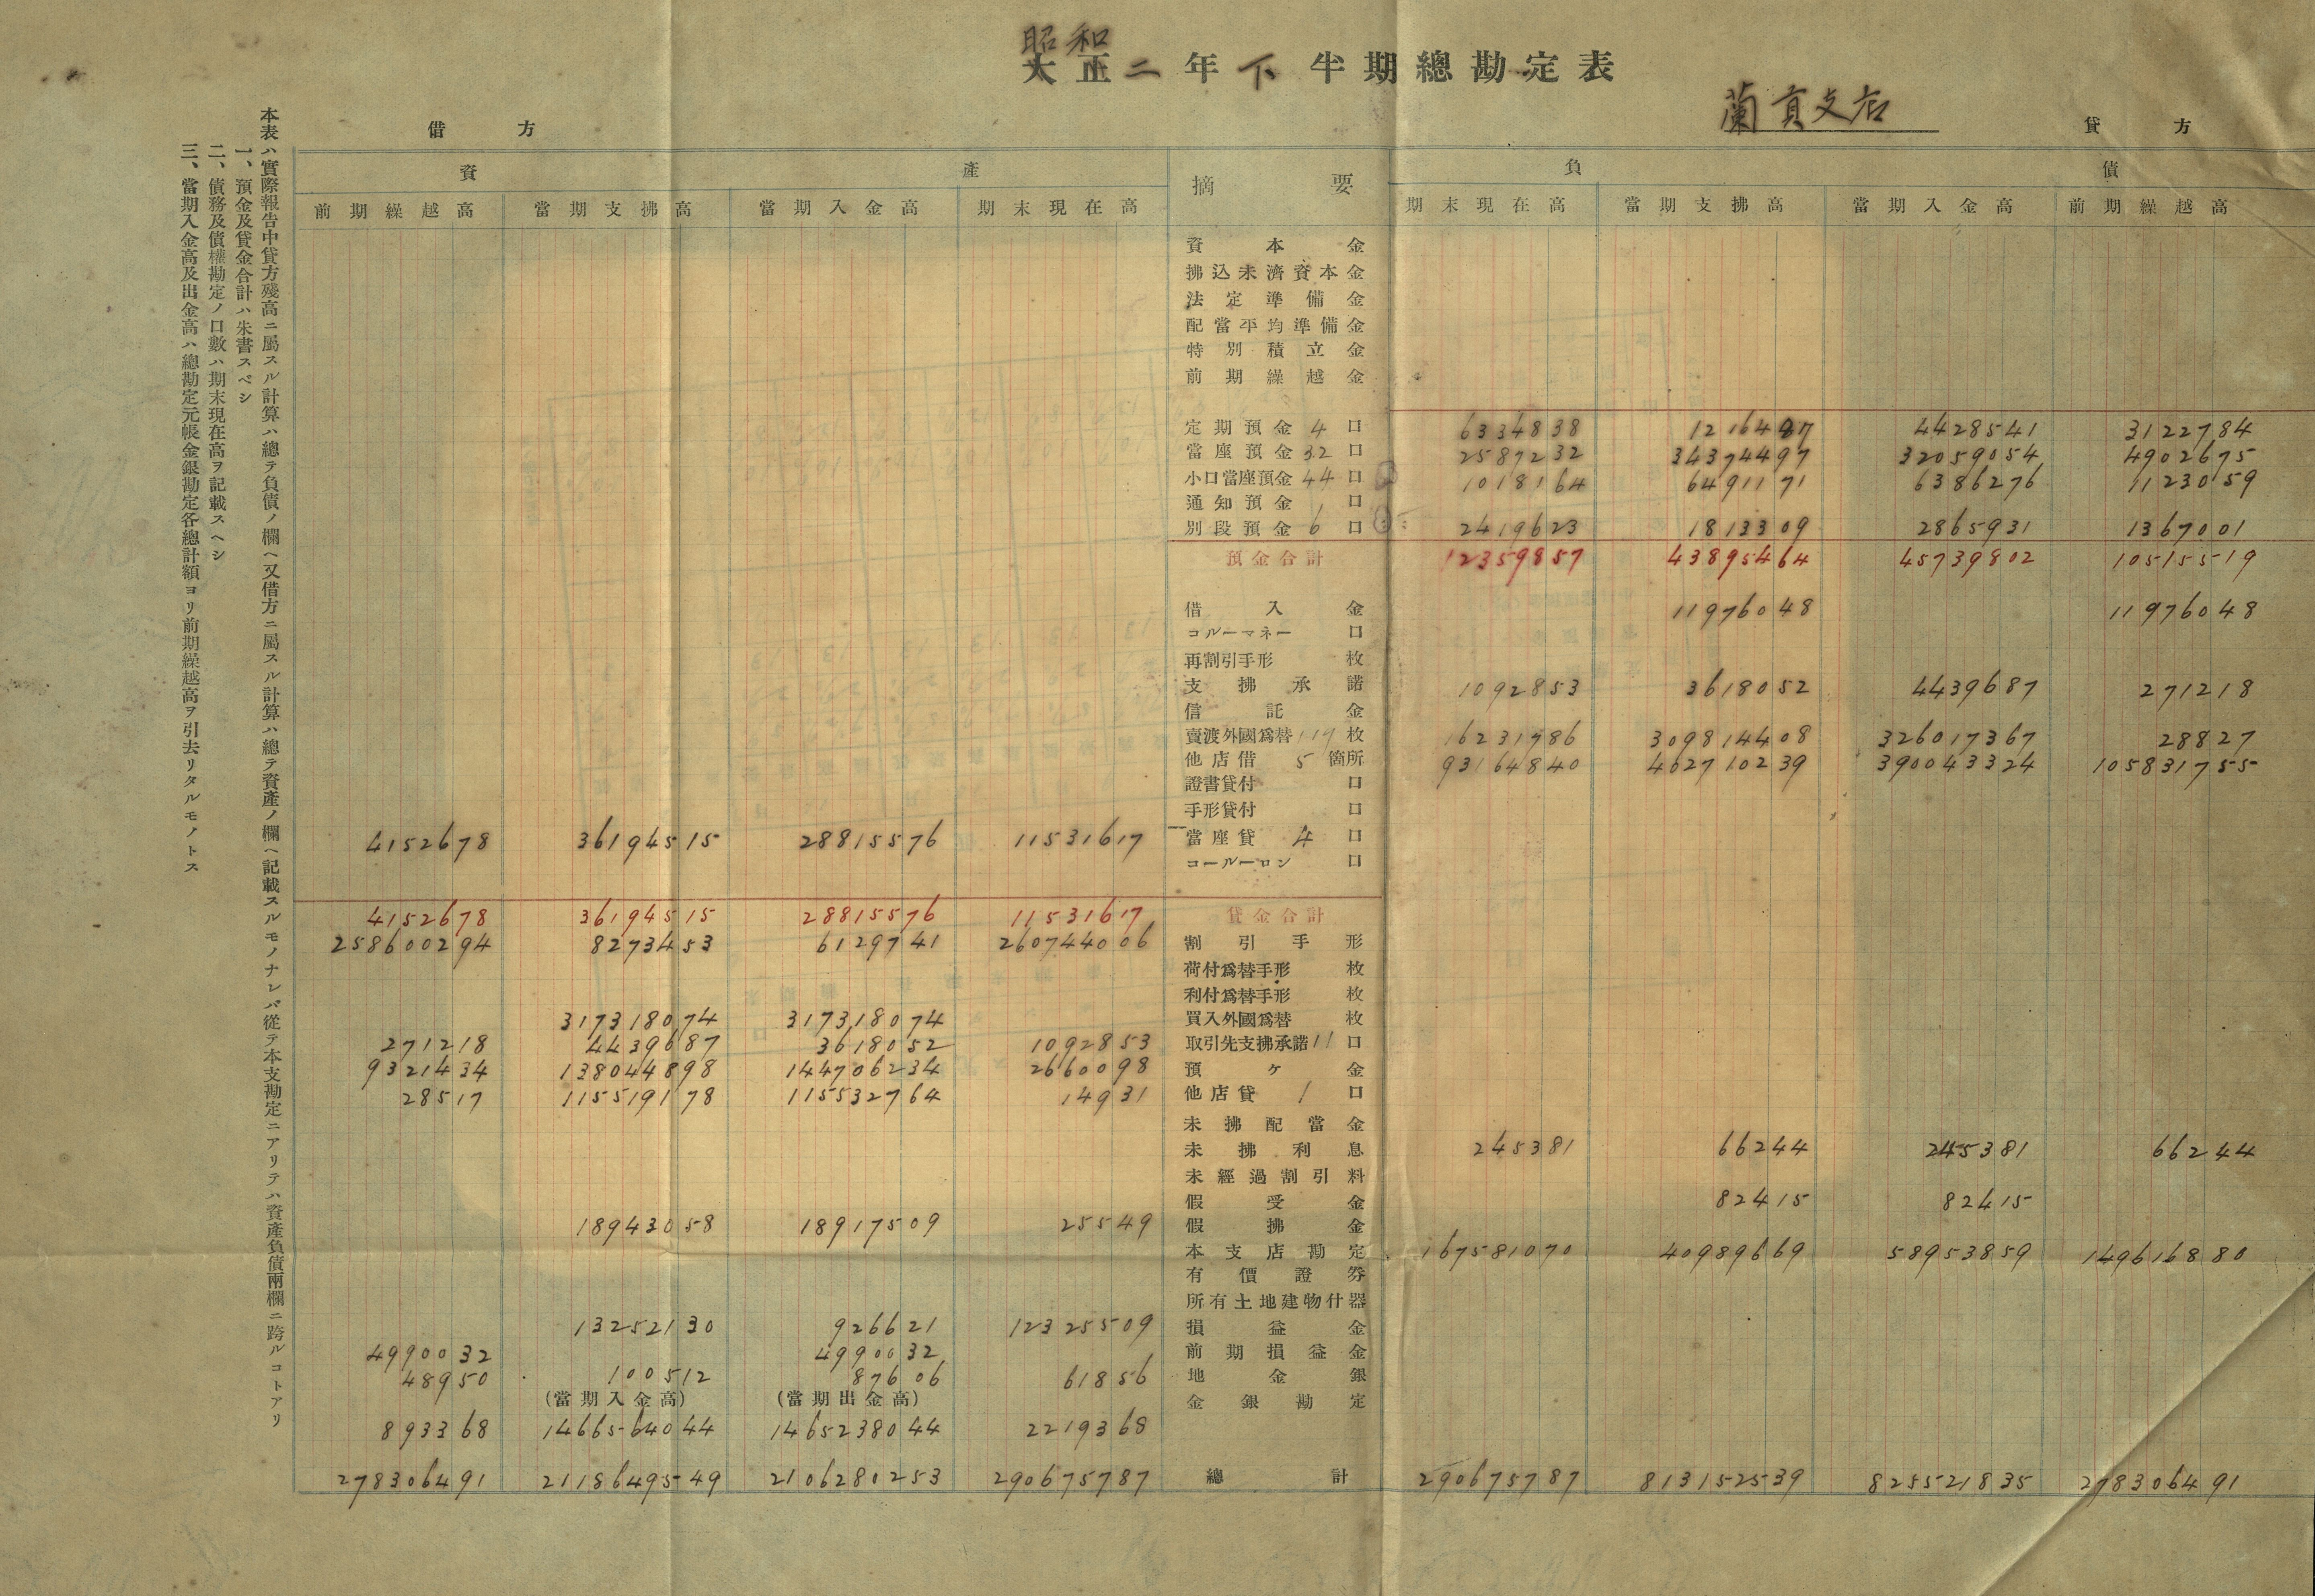 昭和
大正二年下半期總勘定表
蘭貢支店
借方
貸方
資產
摘要
負債
前期繰越高 當期支拂高 當期入金高 期末現在高 期末現在高 當期支拂高 當期入金高 前期繰越高
資本金
拂込未濟資本金
法定準備金
配當平均準備金
特別積立金
前期繰越金
定期預金 4 口 6334838 1216447 4428541 3122784
當座預金 32 口 2587232 34374497 32059054 4902675
小口當座預金 44 口 1018164 6491171 6386276 1123059
通知預金 口
別段預金 6 口 2419623 1813309 2865931 1367001
預金合計 12359857 43895464 45739802 10515519
借入金 11976048 11976048
コルーマネー 口
再割引手形 枚
支拂承諾 1092853 3618052 4439687 271218
信託金
賣渡外國爲替 119 枚 16231786 309814408 326017367 28827
他店借 5 箇所 93164840 402710239 390043324 105831755
證書貸付 口
手形貸付 口
4152678 36194515 28815576 11531617 當座貸 4 口
コールーロン 口
4152678 36194515 28815576 11531617 貸金合計
258600294 8273453 6129741 260744006 割引手形
荷付爲替手形 枚
利付爲替手形 枚
317318074 317318074 買入外國爲替 枚
271218 4439687 3618052 1092853 取引先支拂承諾 11 口
9321434 138044898 144706234 2660098 預ヶ金
28517 115519178 115532764 14931 他店貸 1 口
未拂配當金
未拂利息 245381 66244 245381 66244
未經過割引料
假受金 82415 82415
18943058 18917509 25549 假拂金
本支店勘定 167581070 40989669 58953859 149616880
有價證券
所有土地建物什器
13252130 926621 12325509 損益金
4990032 4990032 前期損益金
48950 100512 87606 61856 地金銀
(當期入金高) (當期出金高) 金銀勘定
893368 1466564044 1465238044 2219368
278306491 2118649549 2106280253 290675787 總計 290675787 813152539 825521835 278306491
本表ハ實際報告中貸方殘高ニ屬スル計算ハ總テ負債ノ欄ヘ又借方ニ屬スル計算ハ總テ資產ノ欄ヘ記載スルモノナレバ從テ本支勘定ニアリテハ資產負債兩欄ニ跨ルコトアリ
一、預金及貸金合計ハ朱書スベシ
二、債務及債權勘定ノ口數ハ期末現在高ヲ記載スヘシ
三、當期入金高及出金高ハ總勘定元帳金銀勘定各總計額ヨリ前期繰越高ヲ引去リタルモノトス